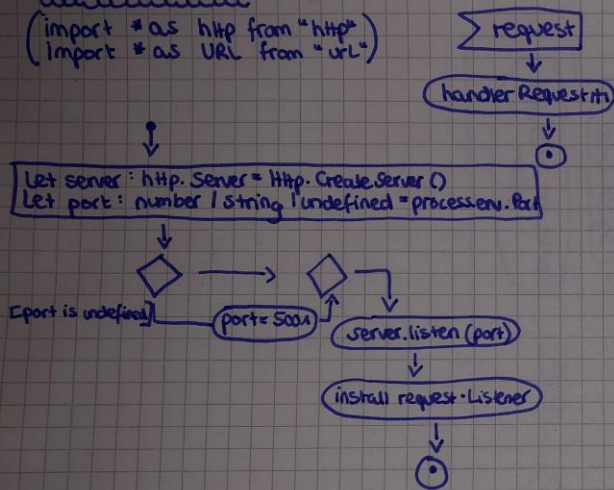 (import * as http from "http"
import * as URL from "url")
request
handlerRequest
Let server : http. Server = Http. CreateServer ()
Let port : number | string | undefined = process.env. Port
[port is undefined]
port = 5001
server.listen (port)
install request.Listener